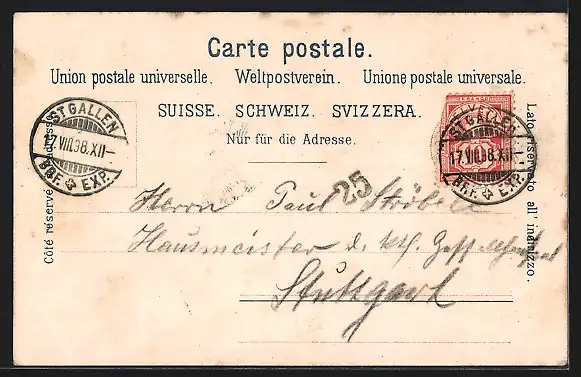 Carte postale.
Union postale universelle. Weltpostverein. Unione postale universale.
SUISSE. SCHWEIZ. SVIZZERA.
Nur für die Adresse.
Côté réservé
Lato riservato all' indirizzo.
ST. GALLEN
17.VIII.98.XII-
BRF. EXP.
FRANCO
ST. GALLEN
17.VIII.98.XII-
BRF. EXP.
25
Herrn Paul
Hausmeister d.
Stuttgart